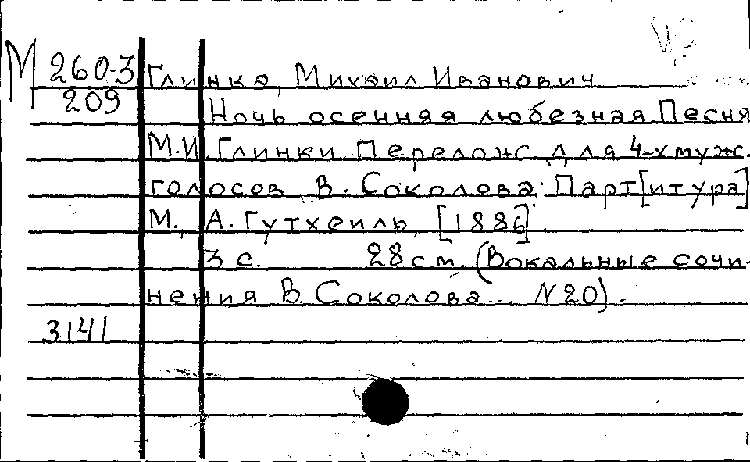 М 260-3 Глинка, Михаил Иванович
209 Ночь осенняя любезная. Песня
М.И. Глинки. Перелож. для 4-х муж.
голосов В. Соколова. Парт[итура]
М., А. Гутхейль, [1886]
3 с. 28 см. (Вокальные сочи-
нения В. Соколова. N 20).
3141